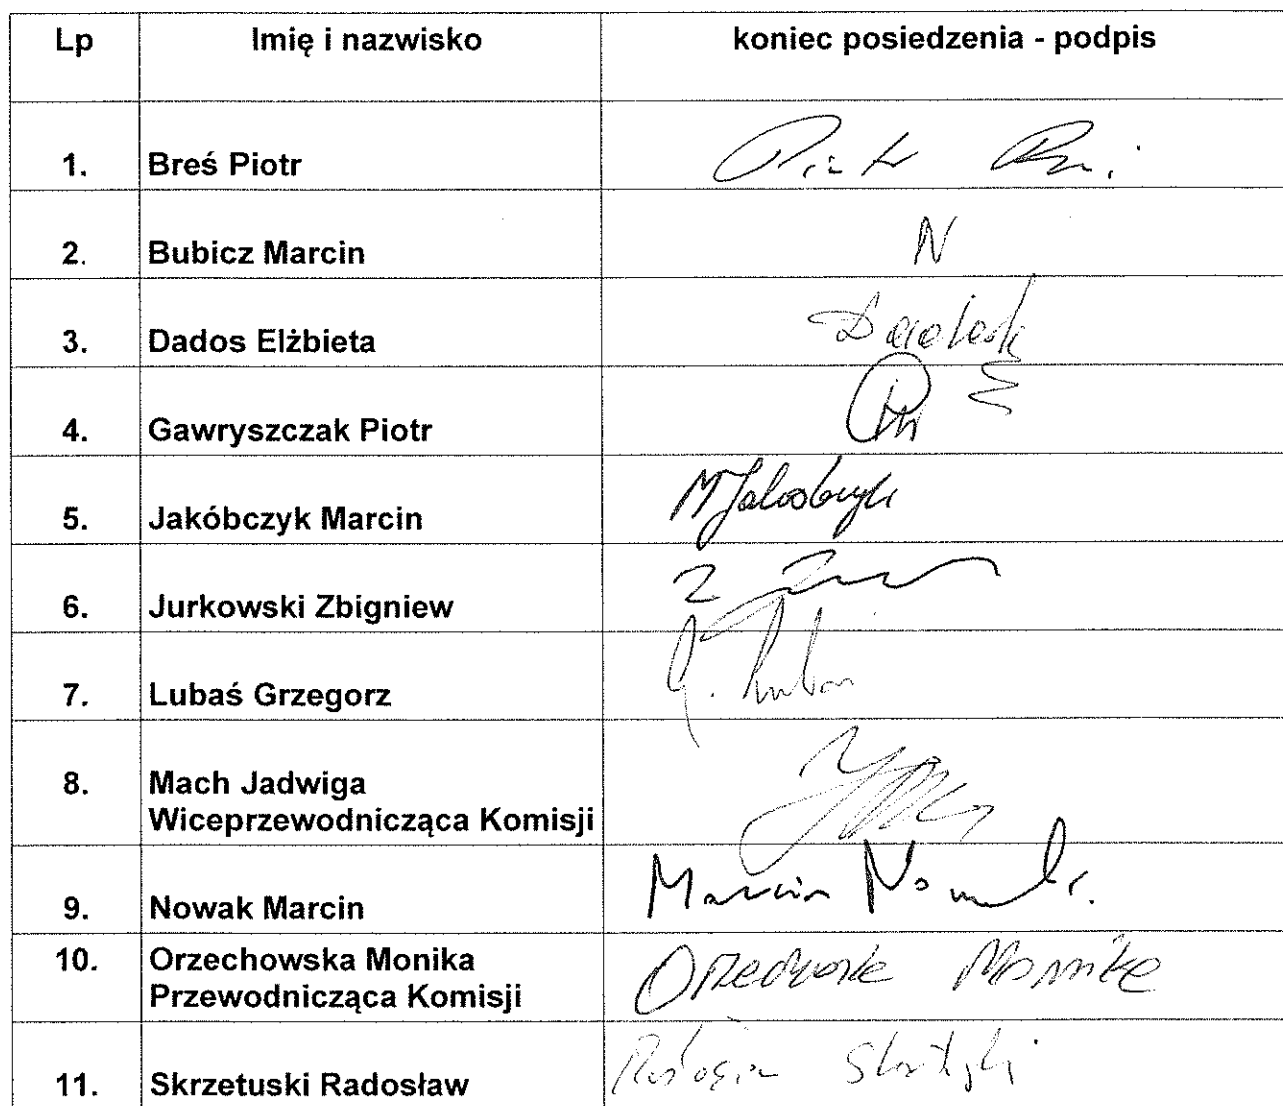 Lp Imię i nazwisko koniec posiedzenia - podpis
1. Breś Piotr Piotr
2. Bubicz Marcin N
3. Dados Elżbieta
4. Gawryszczak Piotr
5. Jakóbczyk Marcin M Jakóbczyk
6. Jurkowski Zbigniew Z
7. Lubaś Grzegorz G. Lubaś
8. Mach Jadwiga
Wiceprzewodnicząca Komisji
9. Nowak Marcin Marcin Nowak
10. Orzechowska Monika Orzechowska Monika
Przewodnicząca Komisji
11. Skrzetuski Radosław